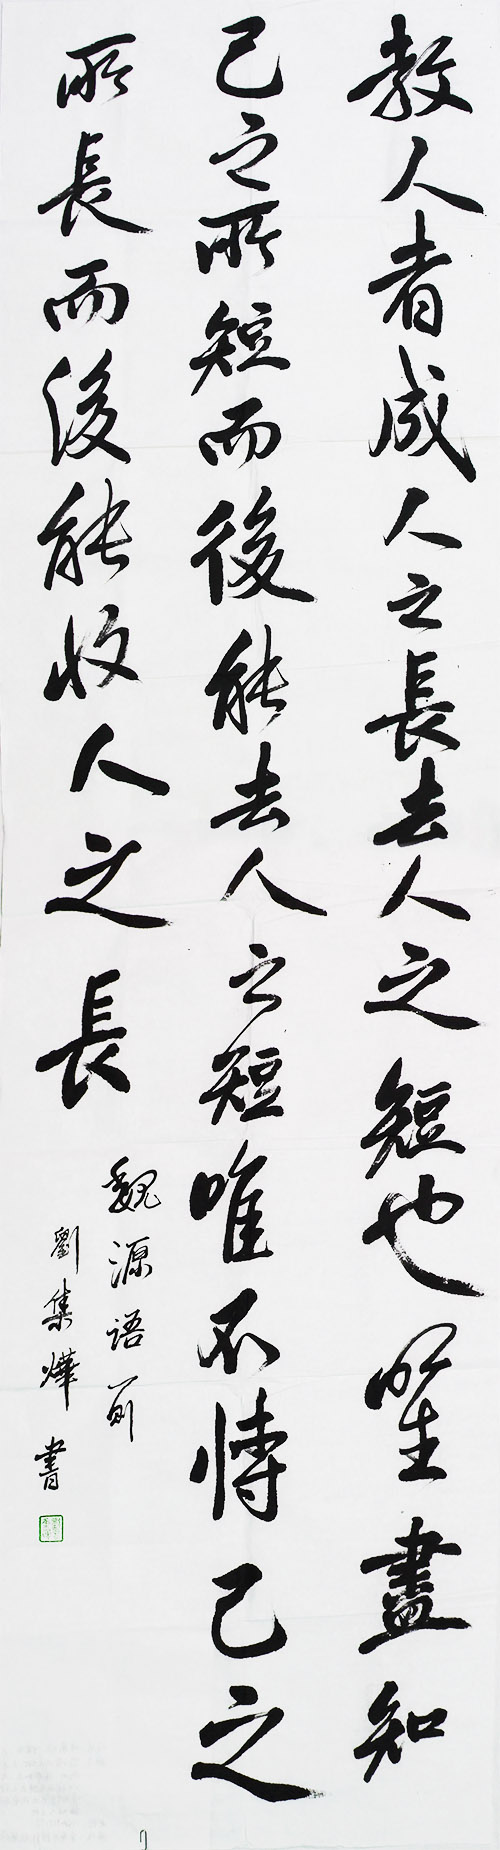 教人者成人之長去人之短也唯盡知
己之所短而後能去人之短唯不恃己之
所長而後能收人之長
魏源语一则
劉集燁書